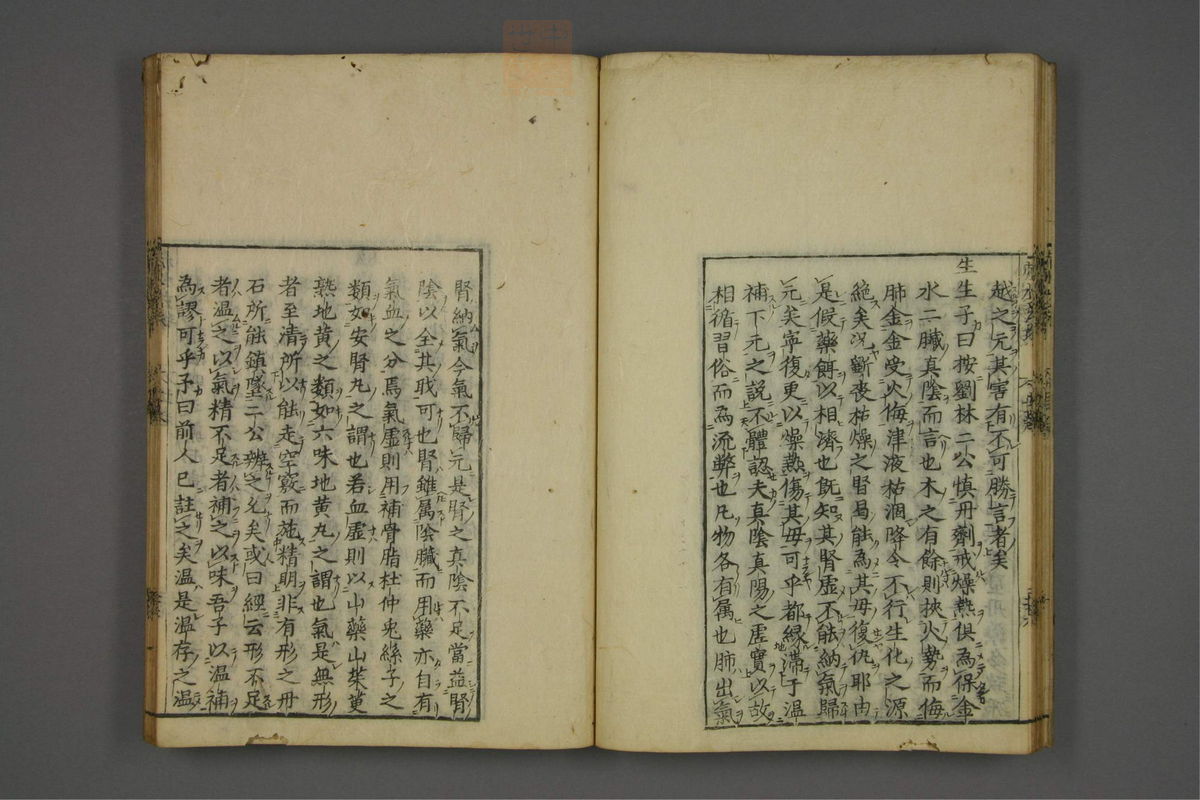 越之元其害有不可勝言者矣
生生子曰按劉林二公慎丹劑戒燥熱俱為保金
水二臟真陰而言也木之有餘則挾火勢而侮
肺金金受火侮津液枯涸降令不行生化之源
絕矣況斷喪枯燥之腎曷能為其母復仇耶由
是假藥餌以相濟也既知其腎虛不能納氣歸
元矣寧復更以燥熱傷其母可乎都緣滯于溫
補下元之說不體認夫真陰真陽之虛實以故
相循習俗而為流弊也凡物各有属也肺出氣
腎納氣今氣不歸元是腎之真陰不足當益腎
陰以全其職可也腎雖属陰臟而用藥亦自有
氣血之分焉氣虛則用補骨脂杜仲兎絲子之
類如安腎丸之謂也若血虛則以山藥山茱萸
熟地黄之類如六味地黄丸之謂也氣是無形
者至清所以能走空竅而施精明非有形之丹
石所能鎮墜二公辨之允矣或曰經云形不足
者溫之以氣精不足者補之以味吾子以溫補
為謬可乎予曰前人已註之矣溫是溫存之溫